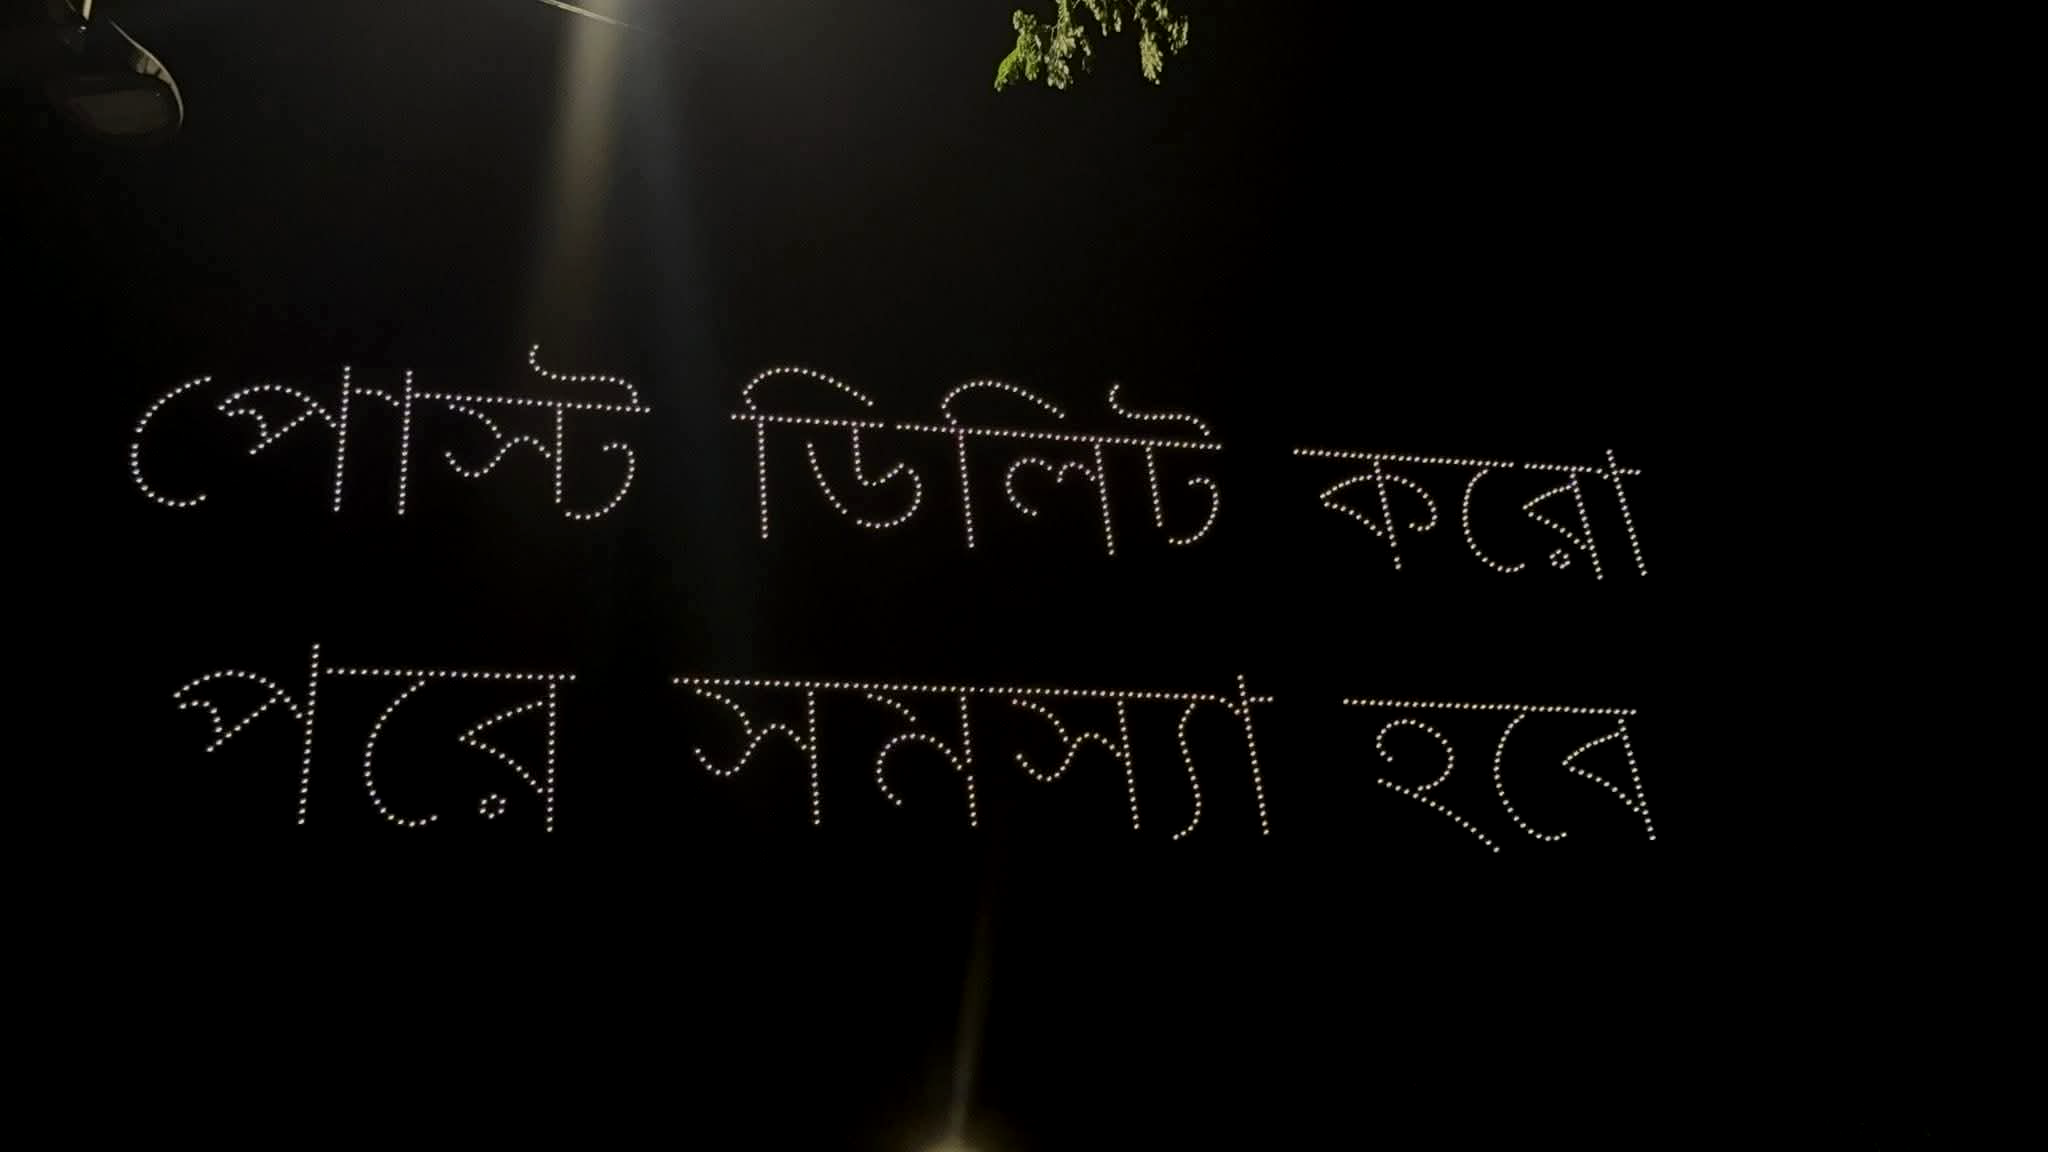 পোস্ট ডিলিট করো
পরে সনস্যা হবে